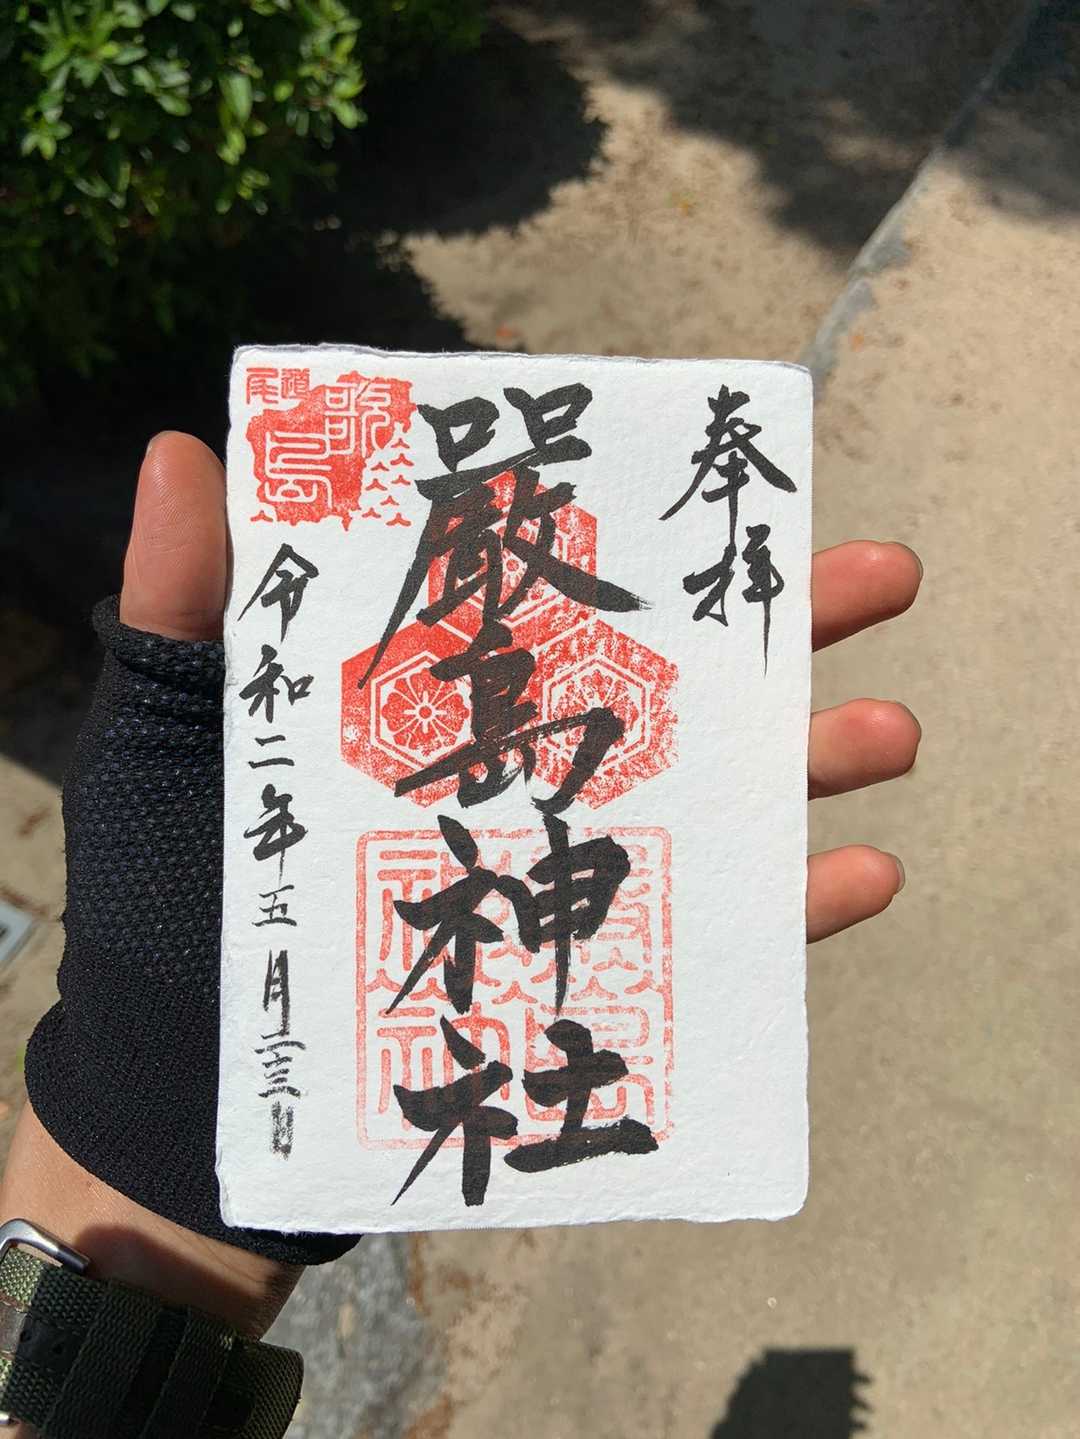 奉拝
厳島神社
令和二年五月二三日
尾道
歌島
厳島
神社